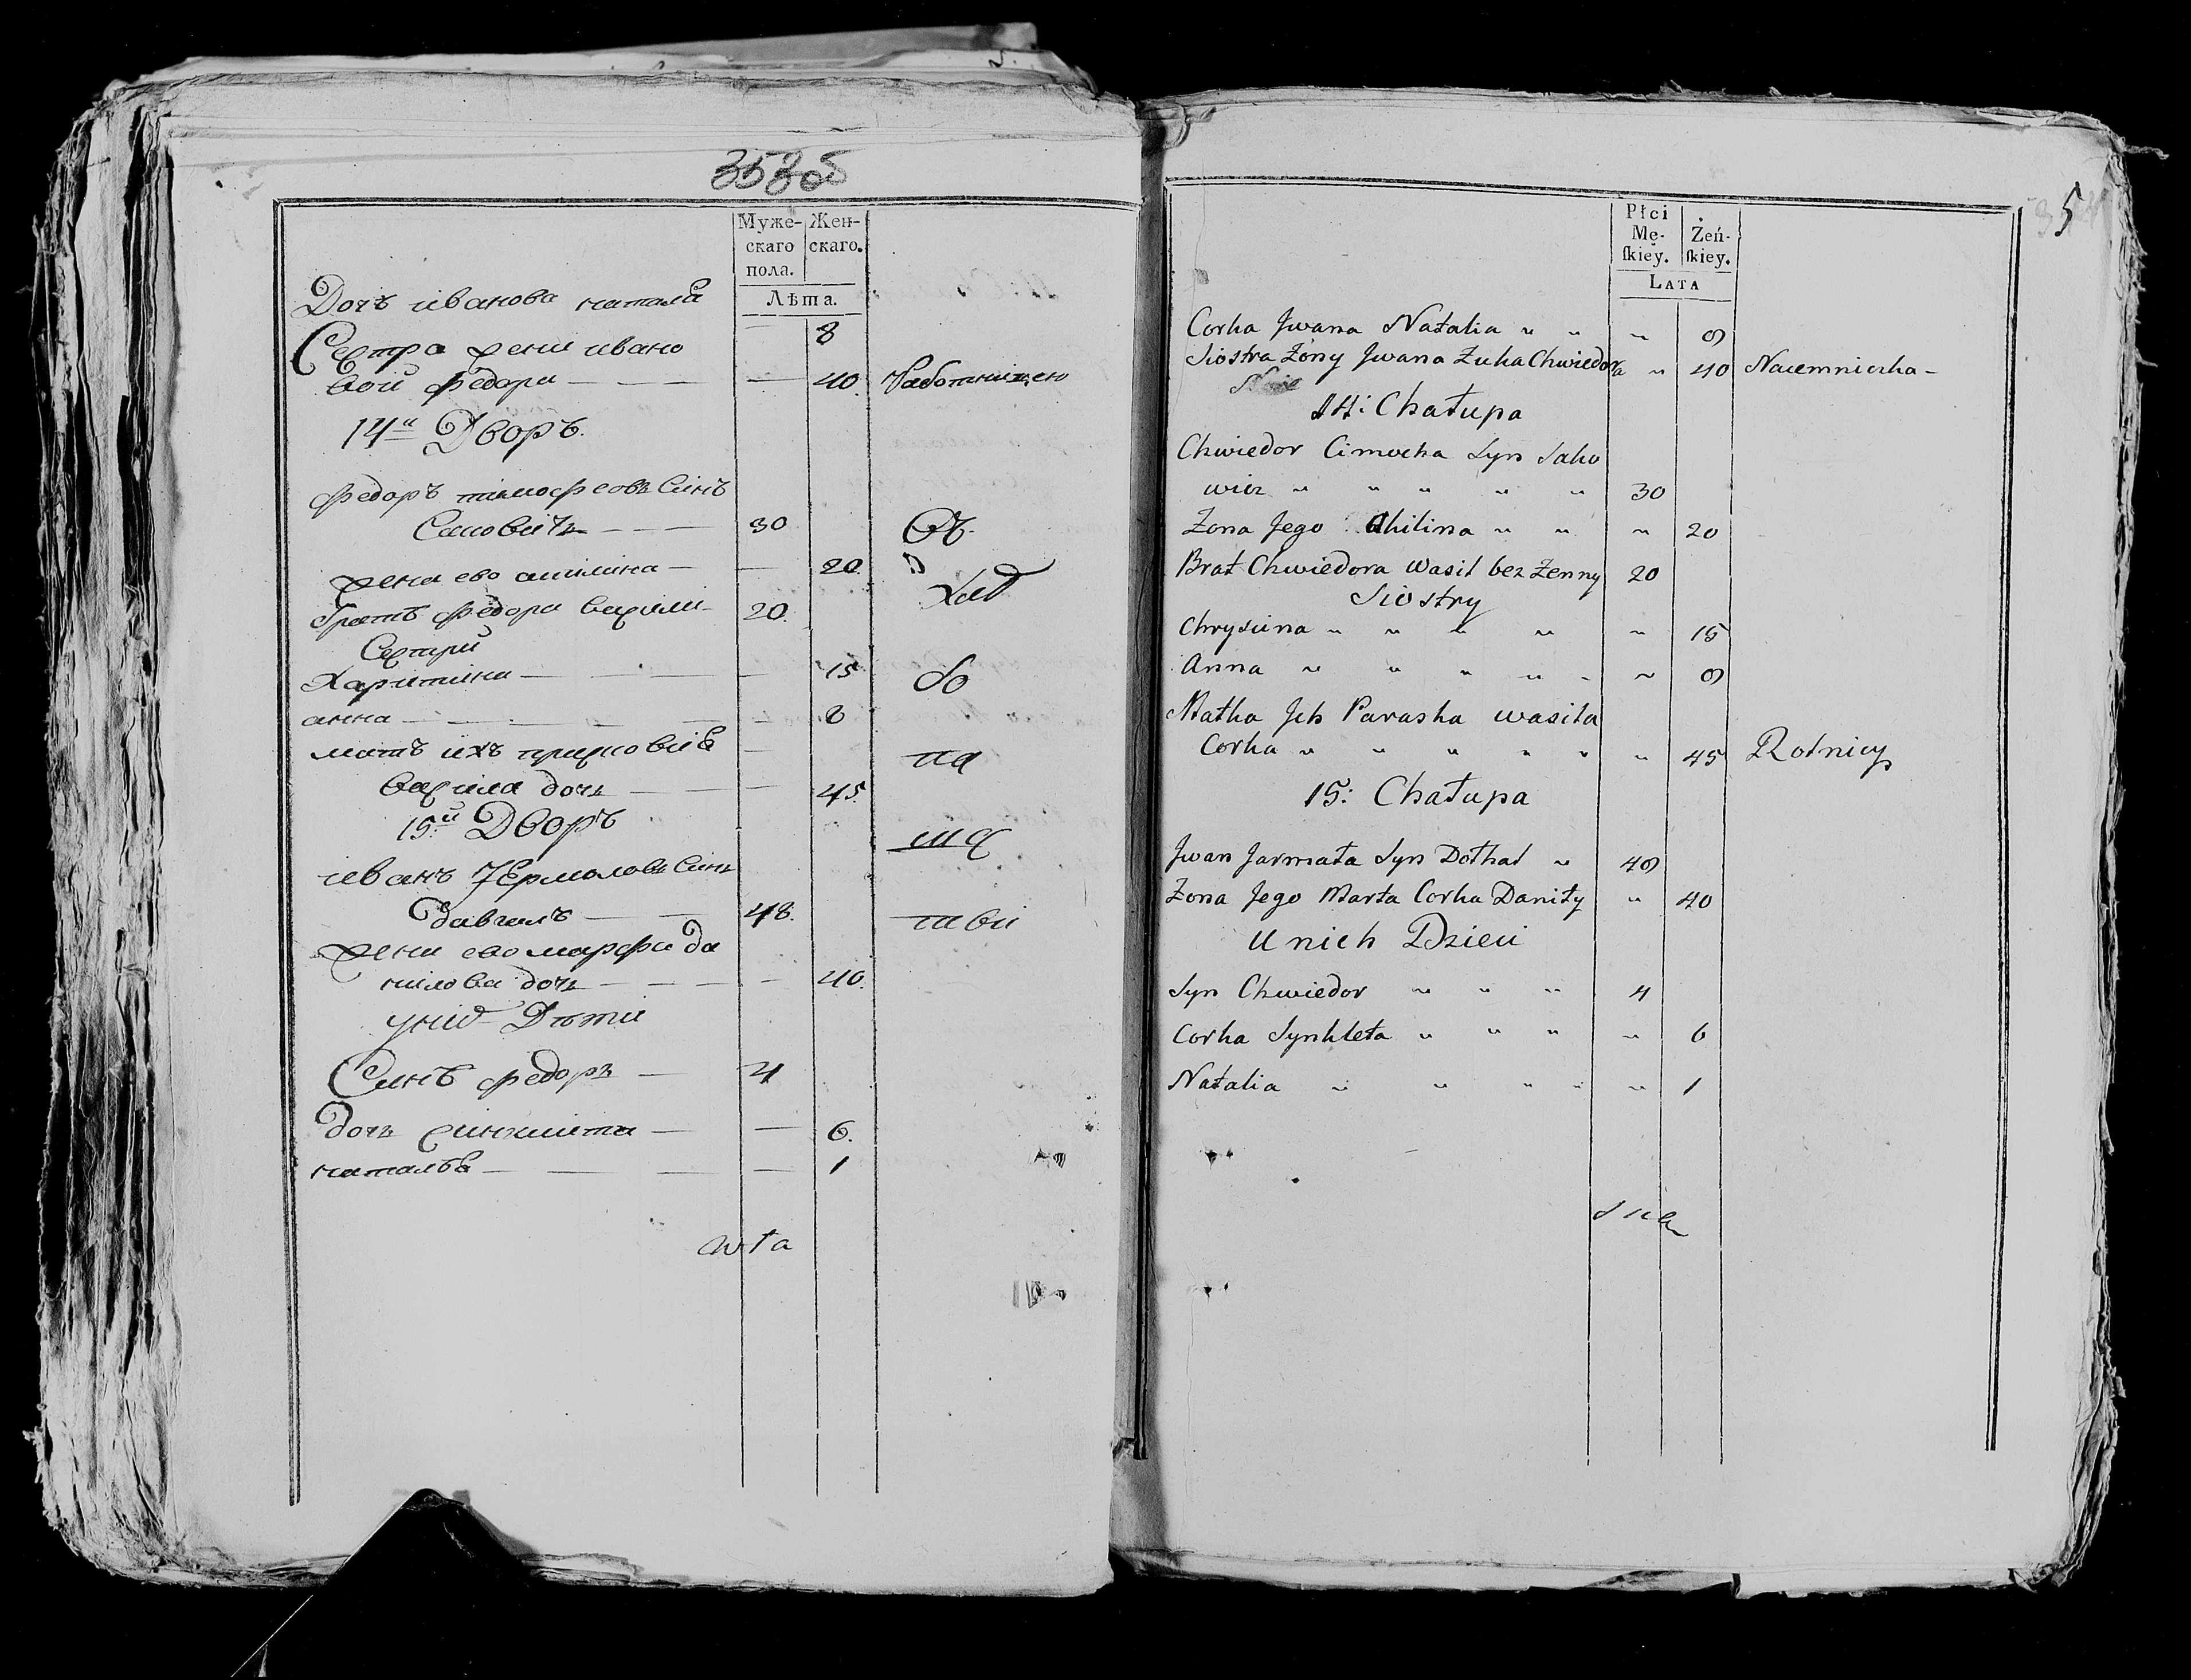 353об
Муже-
скаго
пола.
Жен-
скаго.
Лѣта.
Дочь иванова наталѣ
8
Сестра жени ивано
вой федора — — — — 40. работницею
14й Дворъ.
федоръ тимофеовъ Синъ
Сацовичъ — — — 30
жена ево акилина — — 20.
братъ федора василий 20.
Сестри
Харитина — — — — 15
анна — — — — — 8
мать ихъ
васила дочь — — — 45.
15й Дворъ
иванъ Ермоловъ Синъ
давгалъ — — 48.
жена ево марфа да
нилова дочь — — — — 40.
уних Дѣти
Синъ федоръ — 4
дочь — — 6.
наталѣ — — — — 1
Съ
хад
бо
па
ша
5
Płci
Mę-
ſkiey.
Żeń-
ſkiey.
LATA
Corka Jwana Natalia " " " 8
Siostra Żony Jwana Żuka Chwiedora " 40 Naiemniczka -
14: Chałupa
Chwiedor Cimocha Syn Sako
wicz " " " " " 30
Żona Jego Akilina " " " 20
Brat Chwiedora Wasil bez Żenny 20
Siostry
Chrysiina " " " " " 15
Anna " " " " - " 8
Matka Jch Paraska wasila
Corka " " " " " " 45 Rolnicy
15: Chałupa
Jwan Jarmała Syn Dołhal " 48
Żona Jego Marta Corka Daniły " 40
U nich Dzieci
Syn Chwiedor " " " 4
Corka Synkleta " " " " 6
Natalia " " " " " 1